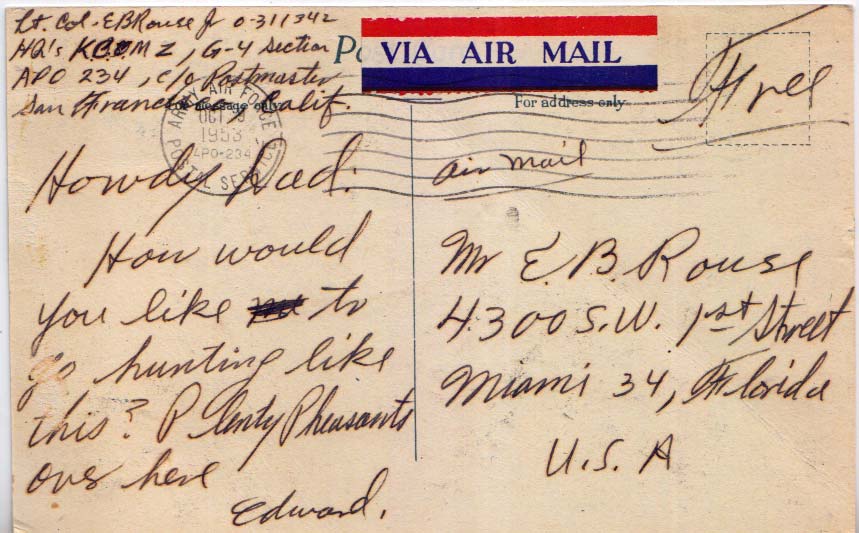 Lt. Col. E B Rouse Jr 0-311342
HQ's KCOMZ, G-4 Section
APO 234, c/o Postmaster
San Francisco, Calif.
VIA AIR MAIL
For message only
For address only
Free
ARMY-AIR FORCE
OCT
1953
APO-234
POSTAL SERV
air mail
Howdy Dad:
How would
you like to
go hunting like
this? Plenty Pheasants
over here
Edward.
Mr E. B. Rouse
4300 S.W. 1st Street
Miami 34, Florida
U.S.A